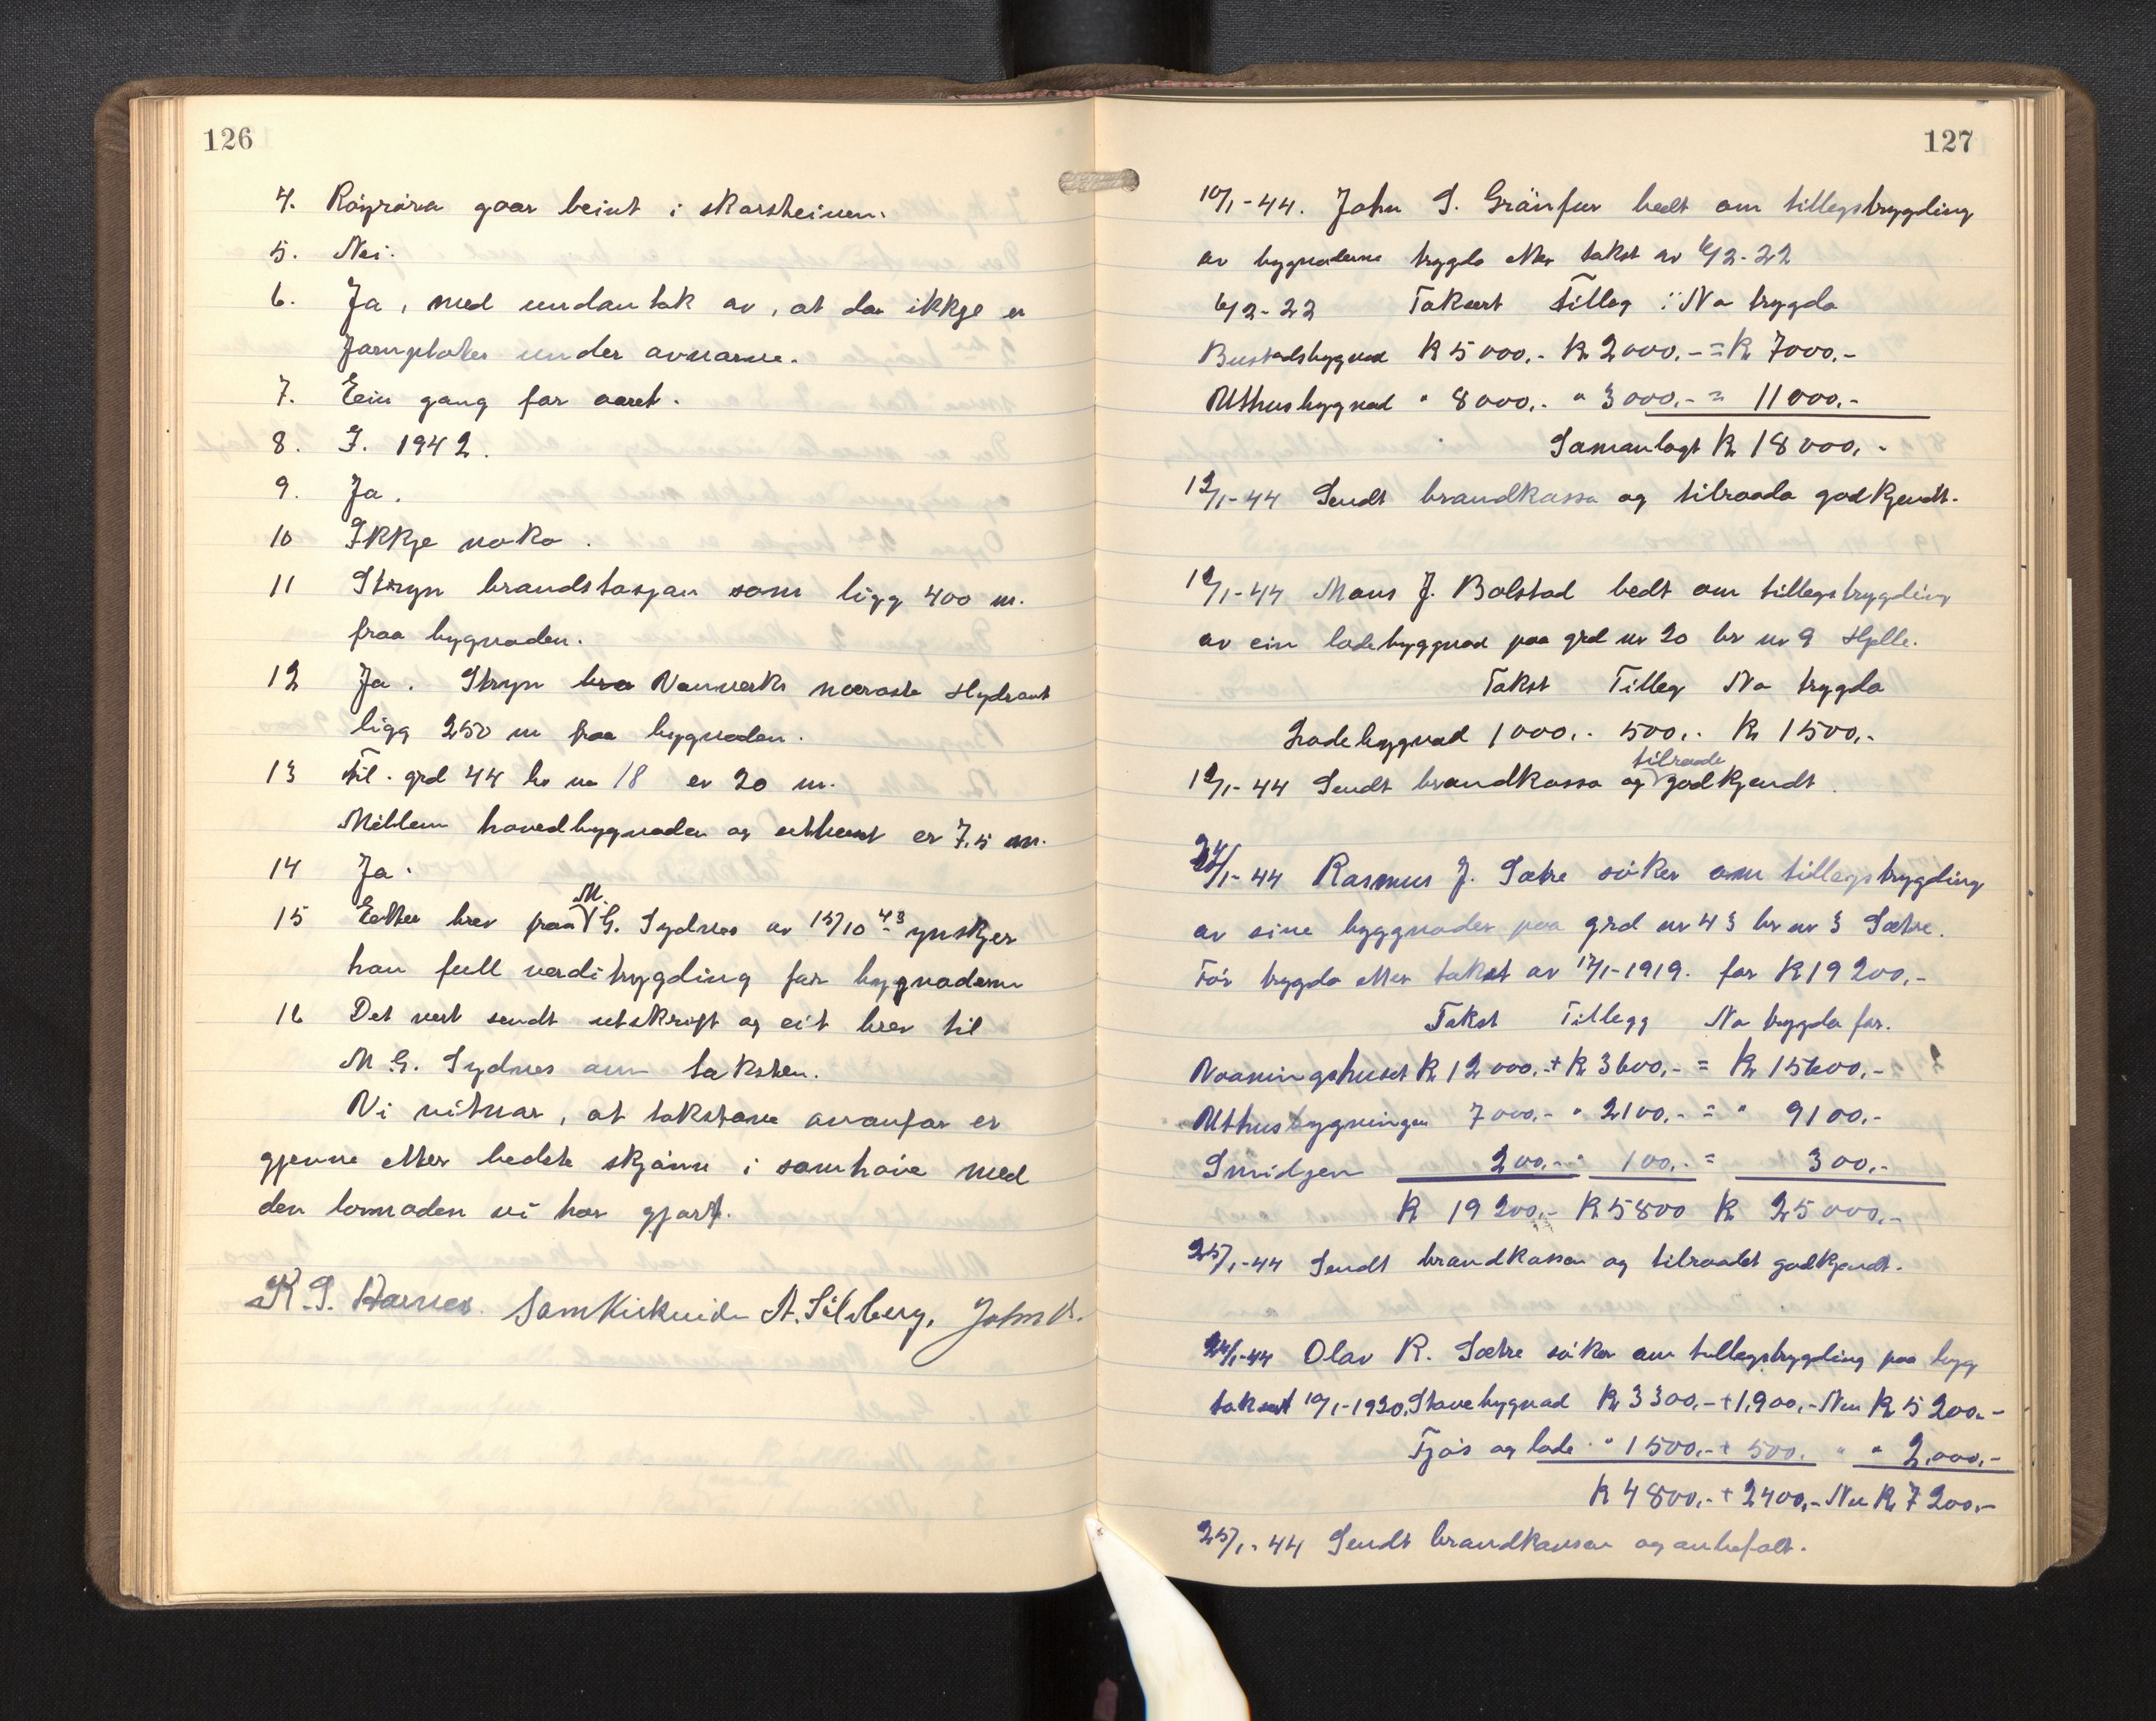 126
4. Röyröra gaar beint i skorsteinen.
5. Nei.
6. Ja, med undantak av, at da ikkje er
Jarnplater under ovnarne.
7. Ein gang for aaret.
8. I. 1942.
9. Ja.
10 Ikkje noko.
11 Stryn brandstasjon som ligg 400 m.
fraa bygnaden.
12 Ja. Stryn Vannverks næraste Hydrant
ligg 250 m fraa bygnaden.
13 Til. grd 44 br nr 18 er 20 m.
Millem hovedbygnaden og uthuset er 7,5 m.
14 Ja.
15 Etter brev fraa M. G. Sydnes av 15/10 - 43 ynskjer
han full verditrygding for bygnadern
16 Det vert sendt utskrift og eit brev til
M G. Sydnes om taksten.
Vi vitnar, at takstane ovanfor er
gjevne etter bedste skjönn i samhöve med
den lovnaden vi har gjort.
R. S. Hornes. Samkirkeide A. Silsberg, John R.
127
10/1-44. John S. Gränfur bedt om tillegstrygding
av bygnaderne trygda etter takst av 6/2-22
6/2-22 Taksert Tilleg : No trygda
Bustadsbygnad R 5000,- R 2000,- = R 7000,-
Uthusbygnad " 8000,- " 3000,- = 11000,-
Samanlagt R 18000,-
12/1-44 Sendt brandkassa og tilraada godkjendt.
12/1-44 Mons J. Bolstad bedt om tillegstrygding
av ein ladebyggnad paa grd nr 20 br nr 9 Hjelle.
Takst Tilleg No trygda
Ladebygnad 1000,- 500,- R 1500,-
12/1-44 Sendt brandkassa og tilraade godkjendt.
24/1-44 Rasmus J. Sætre söker om tillegstrygding
av sine byggnader paa grd nr 43 br nr 3 Sætre.
För trygda etter takst av 17/1-1919. for R 19200,-
Takst Tillegg No trygda for.
Vaaningshuset R 12000,- + R 3600,- = R 15600,-
Uthusbygningen 7000,- " 2100,- = " 9100,-
Smidjen 200,- " 100,- = 300,-
R 19200,- R 5800 R 25000,-
25/1-44 Sendt brandkassen og tilraadet godkjendt.
24/1-44 Olav R. Sætre söker om tillegstrygding paa bygg
taksert 10/1-1920. Stovebygnad R 3300,- + 1,900,- Nu R 5200,-
Fjös og lade " 1500,- + 500. " " 2,000,-
R 4800,- + 2400,- Nu R 7200,-
25/1-44 Sendt brandkassen og anbefalt.